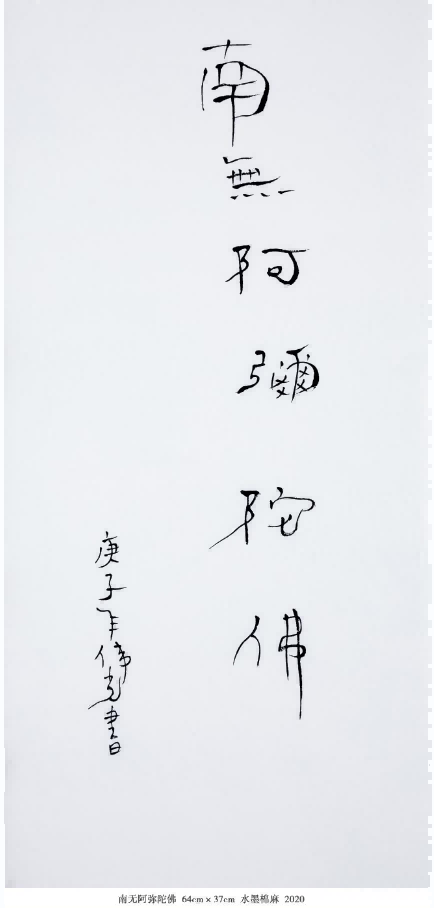 南無阿彌陀佛
庚子年偉光書
南无阿弥陀佛 64cm×37cm 水墨棉麻 2020